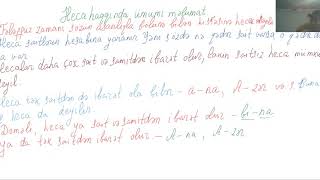 Heca haqqında ümumi məlumat.
Tələffüz zamanı sözün asanlıqla bölünə bilən hissəsinə heca deyilir.
Heca saitlərin hesabına yaranır. Yəni sözdə nə qədər sait varsa, o qədər də
var.
Hecalar daha çox sait və samitdən ibarət olur, lakin saitsiz heca mümkün
deyil.
Heca tək saitdən də ibarət ola bilər - a-na, A-zər və s. Buna
heca da deyilir.
Deməli, heca ya sait və samitdən ibarət olur - bi-na
ya da tək saitdən ibarət olur - A-na, A-zər